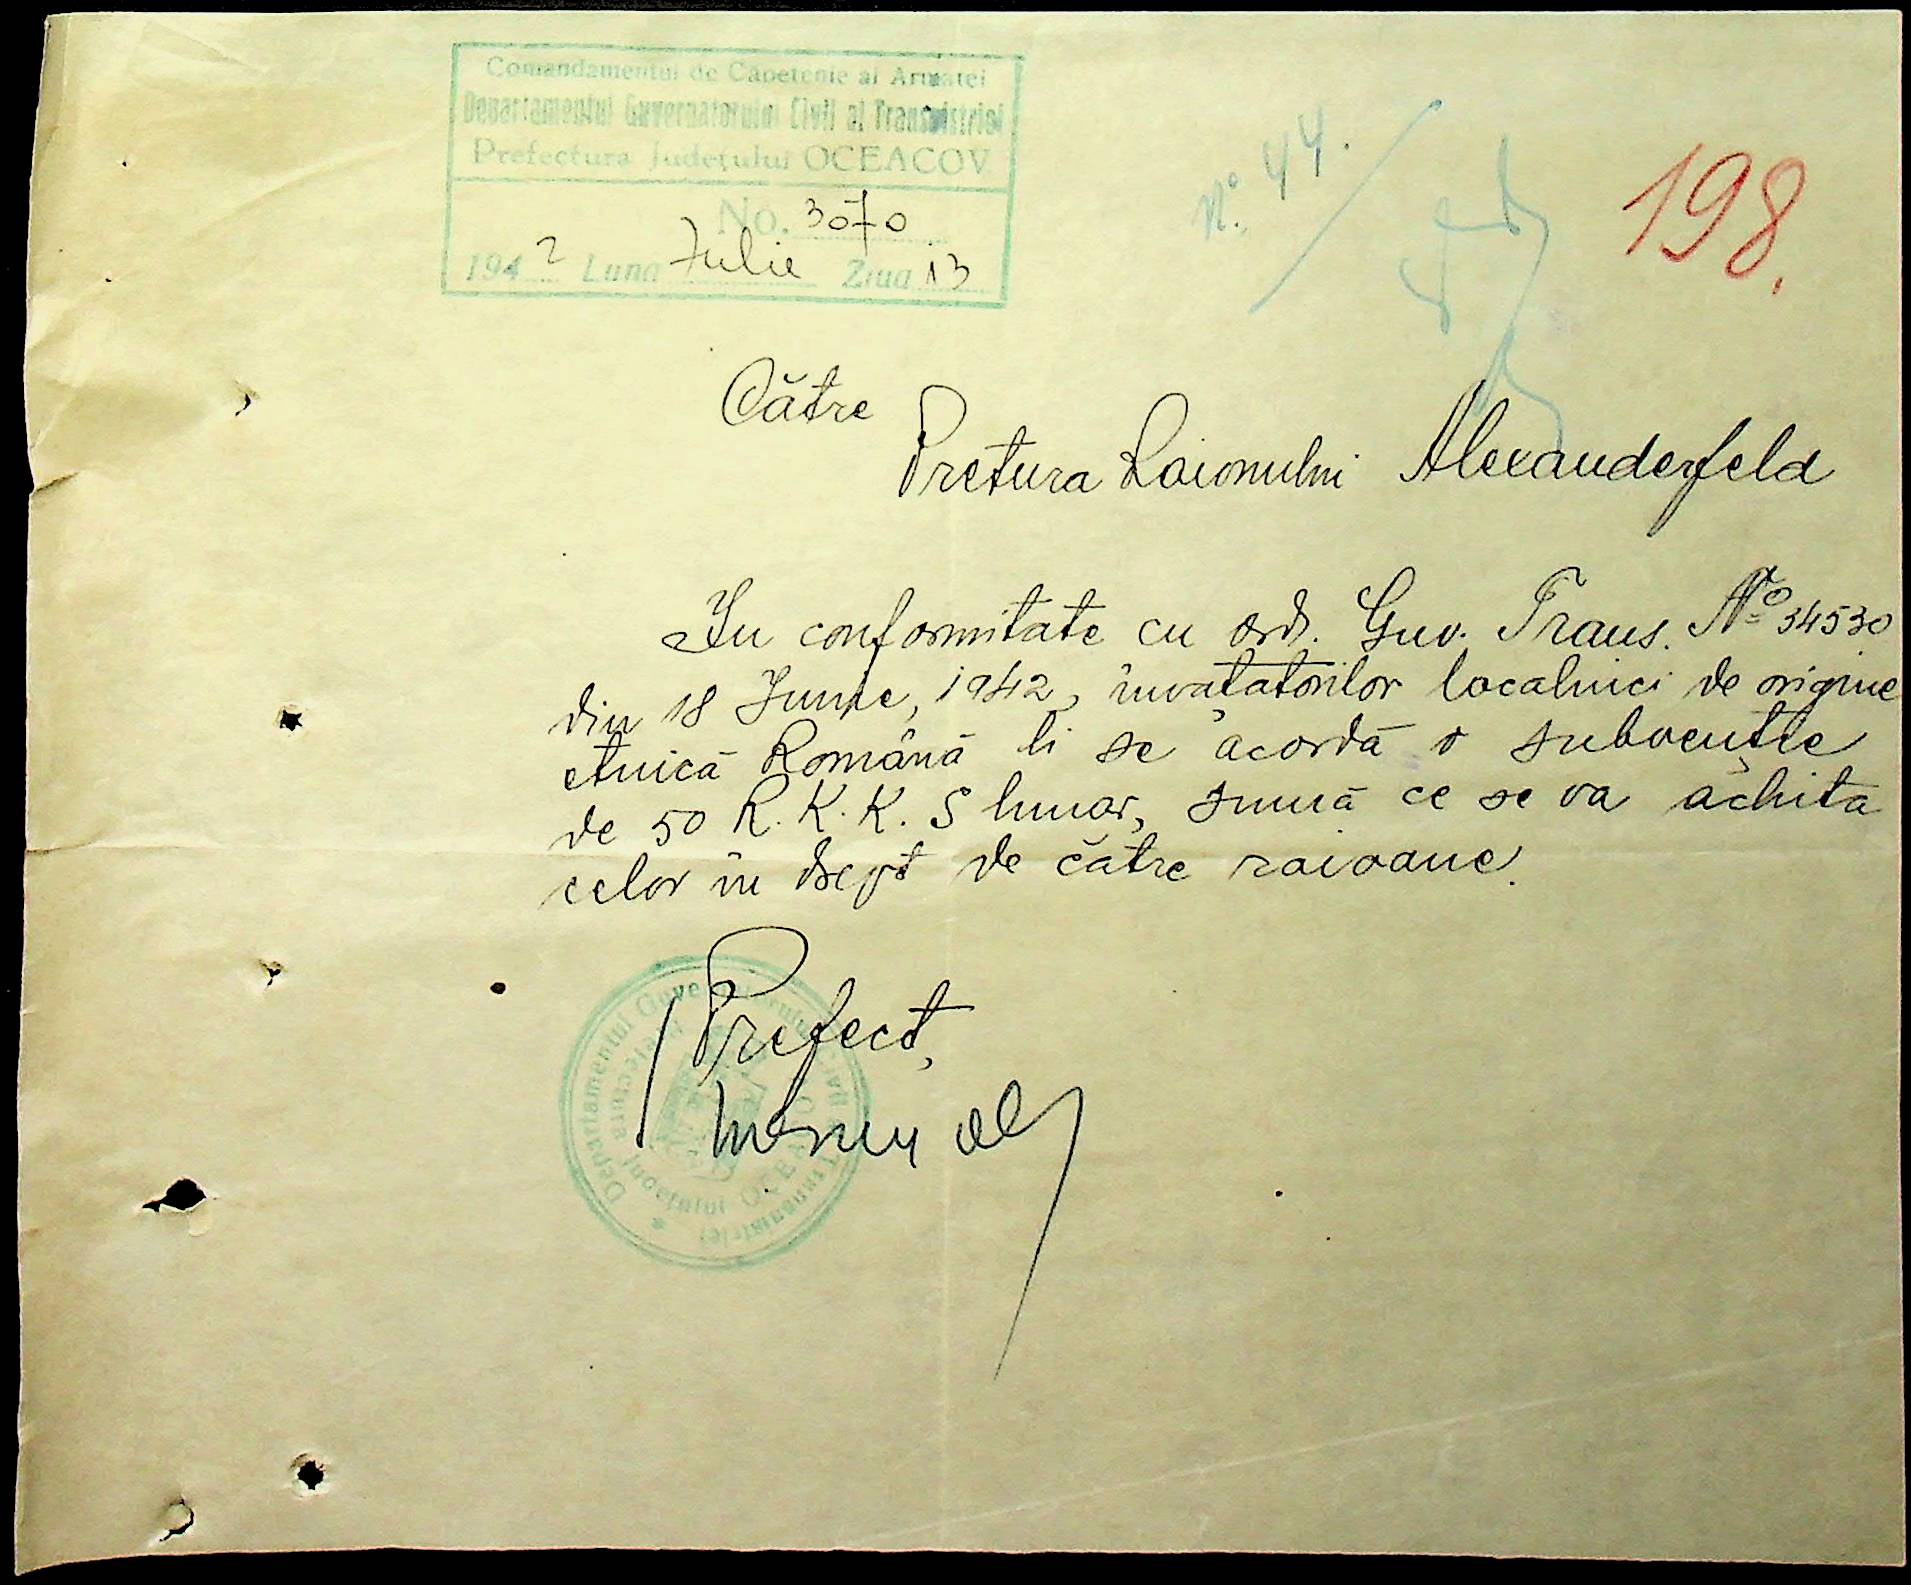 Comandamentul de Căpetenie al Armatei
Departamentul Guvernatorului Civil al Transnistriei
Prefectura Județului OCEACOV
No. 3070
1942 Luna Iulie Ziua 13
No. 44.
198.
Către
Pretura Raionului Alexanderfeld
In conformitate cu ord. Guv. Trans. No 34530
din 18 Iunie, 1942, învațatorilor localnici de origine
etnică Română li se acordă o subvenție
de 50 R.K.K.S lunar, sumă ce se va achita
celor în drept de către raioane.
Prefect,
Departamentul Guvernatorului Civil al Transnistriei
Prefectura Județului OCEACOV